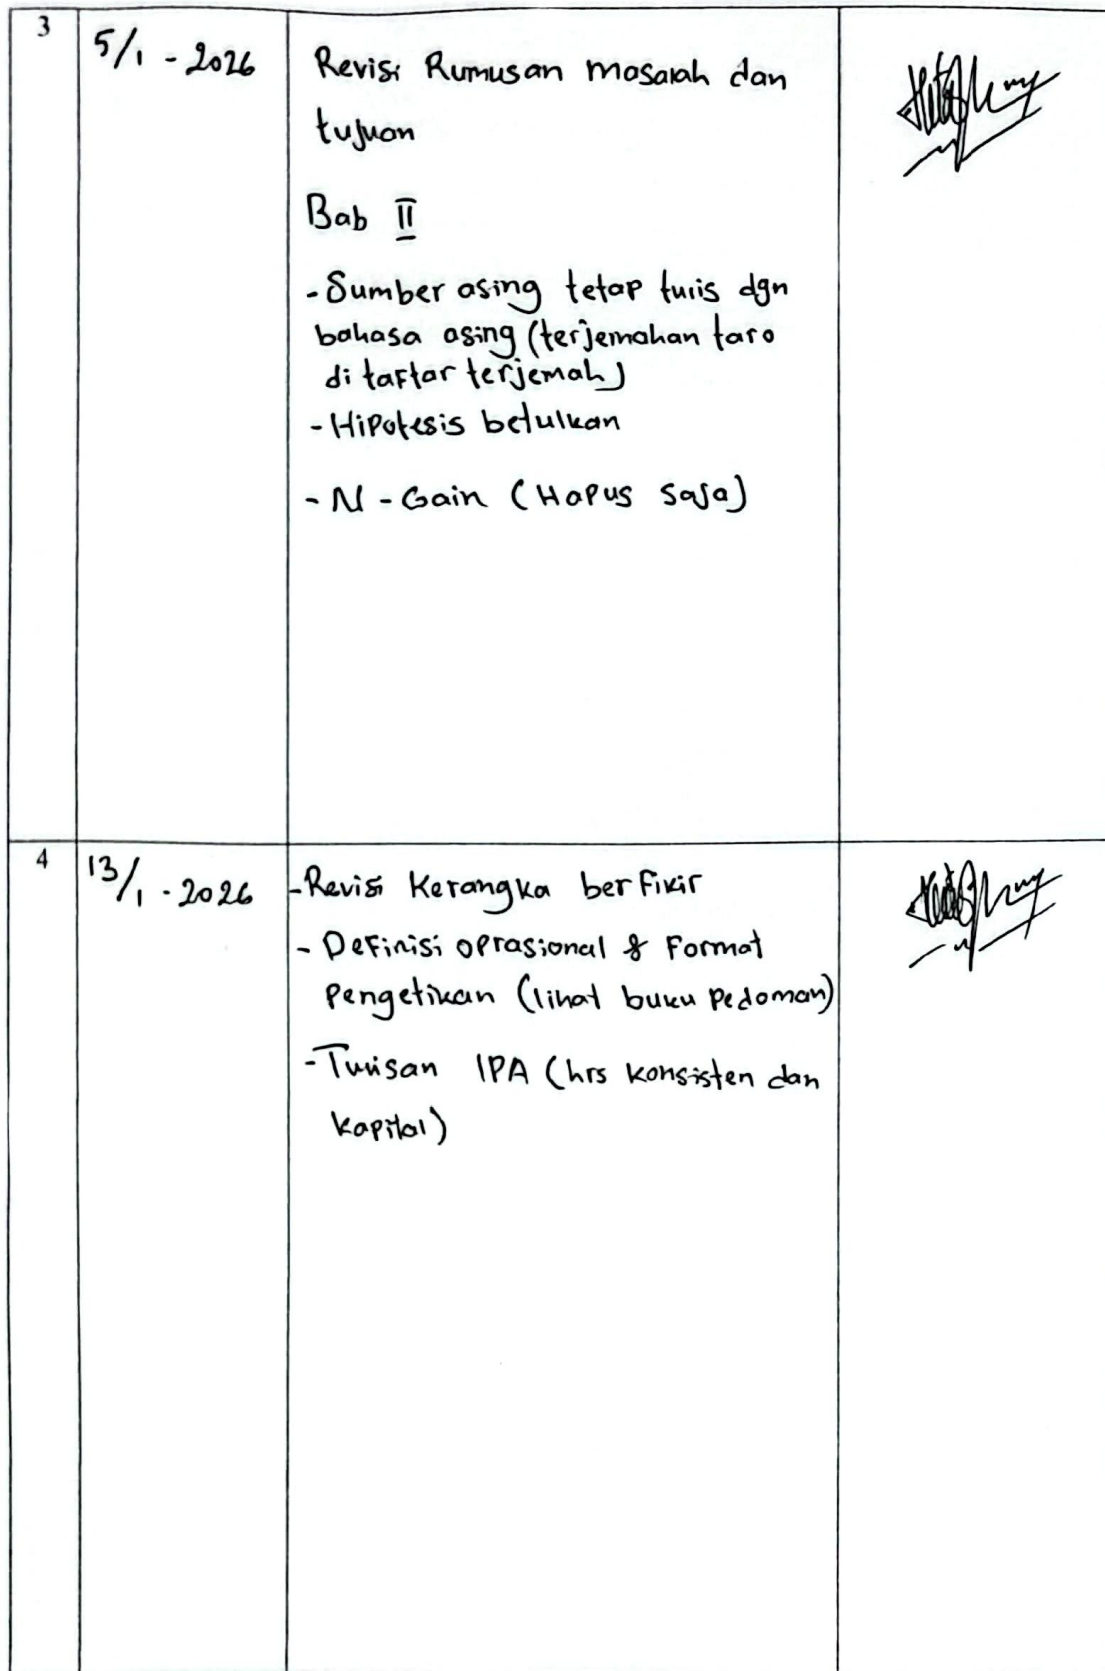 3
5/1 - 2026
Revisi Rumusan masalah dan
tujuan
Bab II
- Sumber asing tetap tulis dgn
bahasa asing (terjemahan taro
di taftar terjemah)
- Hipotesis betulkan
- N - Gain (Hapus saja)
4
13/1 - 2026
- Revisi Kerangka berfikir
- Definisi oprasional & Format
Pengetikan (lihat buku pedoman)
- Tulisan IPA (hrs konsisten dan
kapital)